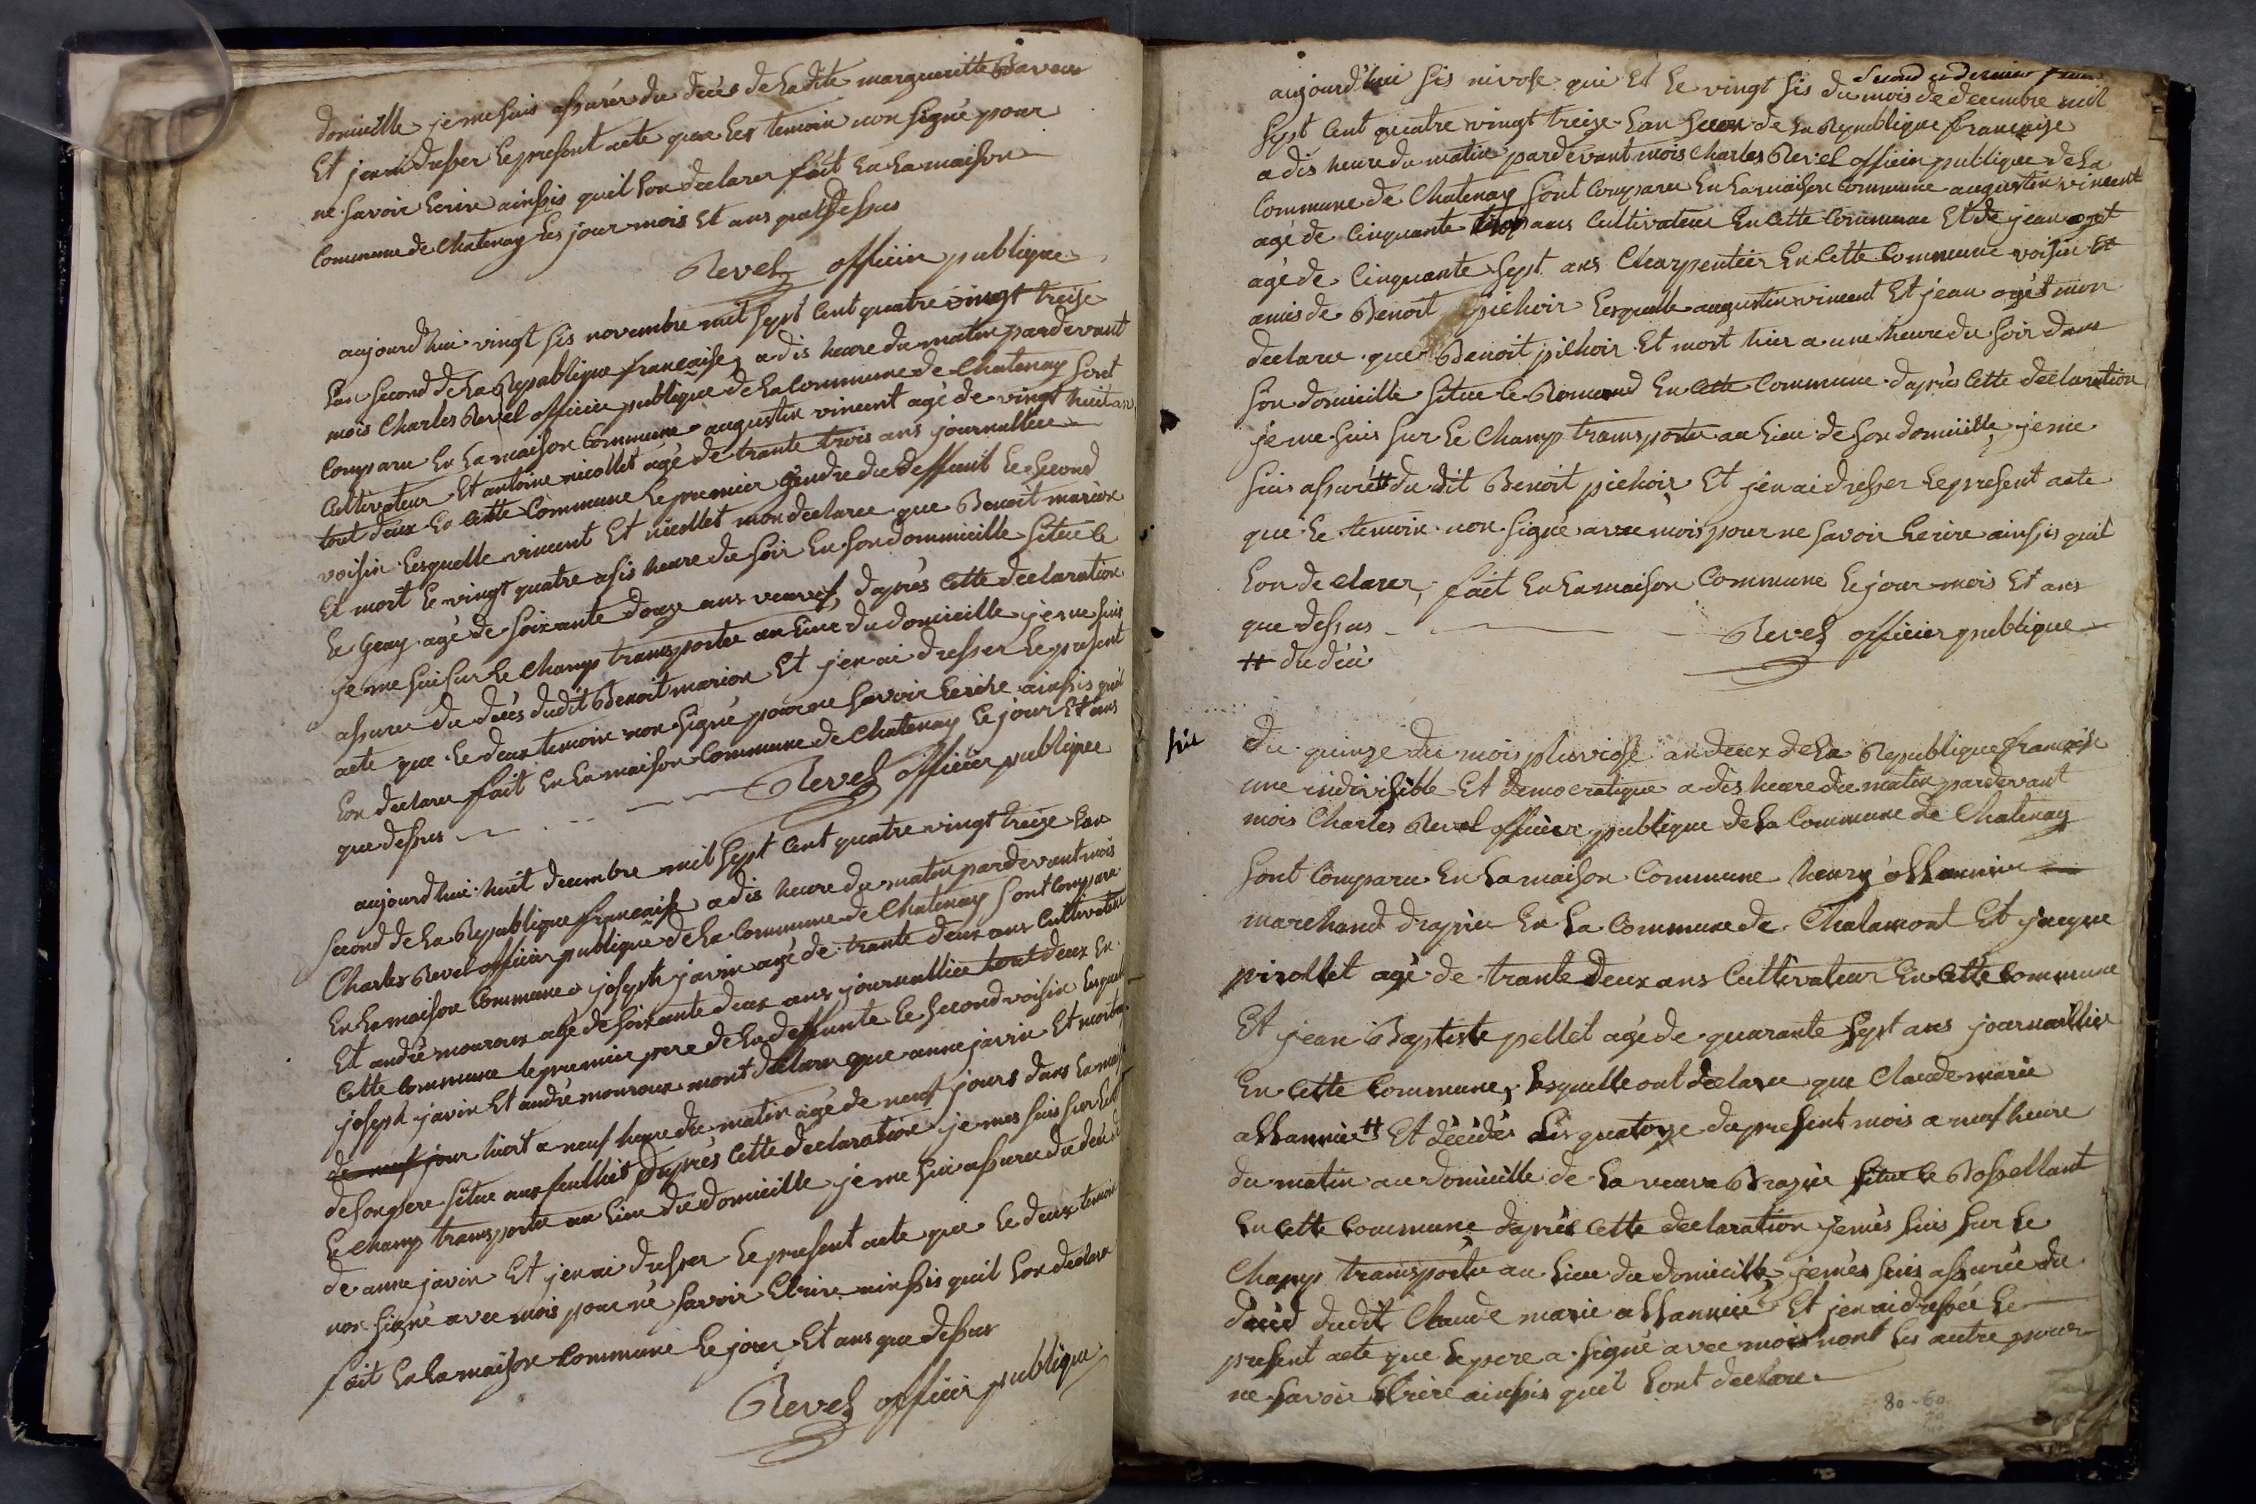 domicille je me suis assurer du décès de la ditte margueritte
Et jen ai dresser le present acte que les temoin non signé pour
ne savoir Ecrire ainssis quil lon declarer fait En la maison
Commune de Chatenay les jour mois Et ans que dessus
Revel officier publique
aujourd'hui vingt sis novembre mil sept cent quatre vingt treise
Lan second de la Republique francaise a dis heure du matin pardevant
mois Charles Revel officier publique de la Commune de Chatenay sont
Comparu En la maison Commune augustin vincent agé de vingt huit ans
Cultivateur Et antoine nicollet agé de trante trois ans journallier
tout deux En Cette Commune le premier gendre du deffunt le second
voisin lesquelle vincent Et nicollet mon declaree que Benoit marion
Et mort le vingt quatre a sis heure du soir En son dommicille situé le
le Geay agé de soixante douze ans veuvef, daprès Cette declaration
je me suis sur le Champ transporter au lieu du domicille je me suis
assurer du décès dudit Benoit marion Et jen ai dresser le present
acte que le deux temoin non signé pour ne savoir Ecrire ainssis quil
lon declaree fait En la maison Commune de Chatenay le jour Et ans
que dessus Revel officier publique
aujourdhui huit decembre mil sept cent quatre vingt treize Lan
second de la Republique francaise a dis heure du matin pardevant mois
Charles Revel officier publique de la Commune de Chatenay sont Comparu
En la maison Commune joseph javin agé de trante deux ans Cultivateur
Et andré mouroux agé de soixante deux ans journallier tout deux En
Cette Commune le premier pere de la deffunte le second voisin lesquelle
joseph javin Et andré mouroux mont declarer que anne javin Et morte
de neuf jour hiert a neuf heure du matin agé de neuf jours dans la maison
de son pere situe aux feulliet daprès Cette declaration je mes suis sur le
le Champ transporter au lieu du domicille je me suis assurer du décès
de anne javin Et jen ai dresser le present acte que le deux temoin
non signé avec mois pour ne savoir Ecrire ainssis quil lon declare
fait En la maison Commune le jour Et ans que dessus
Revel officier publique
second et dernier
aujourd'hui sis nivose qui Et le vingt sis du mois de decembre mil
sept Cent quatre vingt treize Lan second de la Republique francaise
a dis heure du matin pardevant mois Charles Revel officier publique de la
Commune de Chatenay sont Comparu En la maison Commune augustin vincent
agé de Cinquante ans Cultivateur En Cette Commune Et de jean
agé de Cinquante sept ans Charpentier En Cette Commune voisin Et
amis de Benoit pichoir lesquelle augustin vincent Et jean mon
declaree que Benoit pichoir Et mort hier a une heure du soir dans
son domicille situe le En Cette Commune daprès Cette declaration
je me suis sur le Champ transporter au lieu de son domicille, je me
suis assuré # du dit Benoit pichoir Et jen ai dresser le present acte
que le temoin non signé avec mois pour ne savoir Ecrire ainssis quil
lon declarer, fait En la maison Commune le jour mois Et ans
que dessus Revel officier publique
# du décé
du quinze du mois pluviose an deux de la Republique francaise
une indivisible Et democratique a dis heure du matin pardevant
mois Charles Revel officier publique de la Commune de Chatenay
sont Comparu En la maison Commune henry
marchand drapier En la Commune de Chalamont Et jacque
pirollet agé de trante deux ans Cultivateur En Cette Commune
Et jean Baptiste pellet agé de quarante sept ans journallier
En Cette Commune, lesquelle ont declaree que Claude marie
# Et décédés le quatorze du present mois a neuf heure
du matin au domicille de la veuve Brazier situe le
En Cette Commune daprès Cette declaration je mes suis sur le
Champ transporter au lieu du domicille, je mes suis assurée du
décéd dudit Claude marie Et jen ai dressée le
present acte que le pere a signé avec mois nont les autre pour
ne savoir Ecrire ainssis quil lont declare
80-60